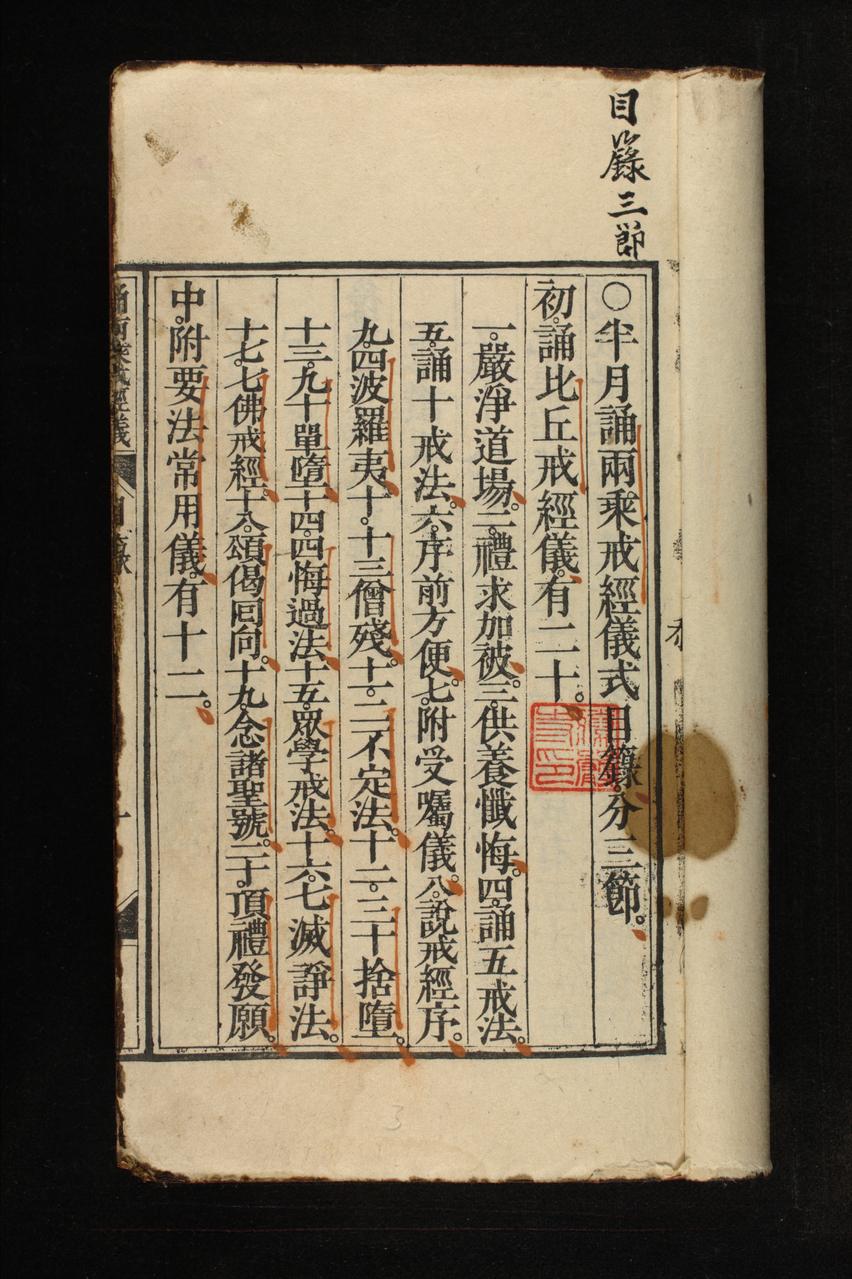 目籙三節
○半月誦兩乘戒經儀式目籙。分三節。
初。誦比丘戒經儀。有二十。
一。嚴淨道場。二。禮求加被。三。供養懺悔。四。誦五戒法。
五。誦十戒法。六。序前方便。七。附受囑儀。八。說戒經序。
九。四波羅夷。十。十三僧殘。十一。二不定法。十二。三十捨墮。
十三。九十單墮。十四。四悔過法。十五。眾學戒法。十六。七滅諍法。
十七。七佛戒經。十八。頌偈回向。十九。念諸聖號。二十。頂禮發願。
中。附要法常用儀。有十二。
誦兩乘戒經儀 目籙